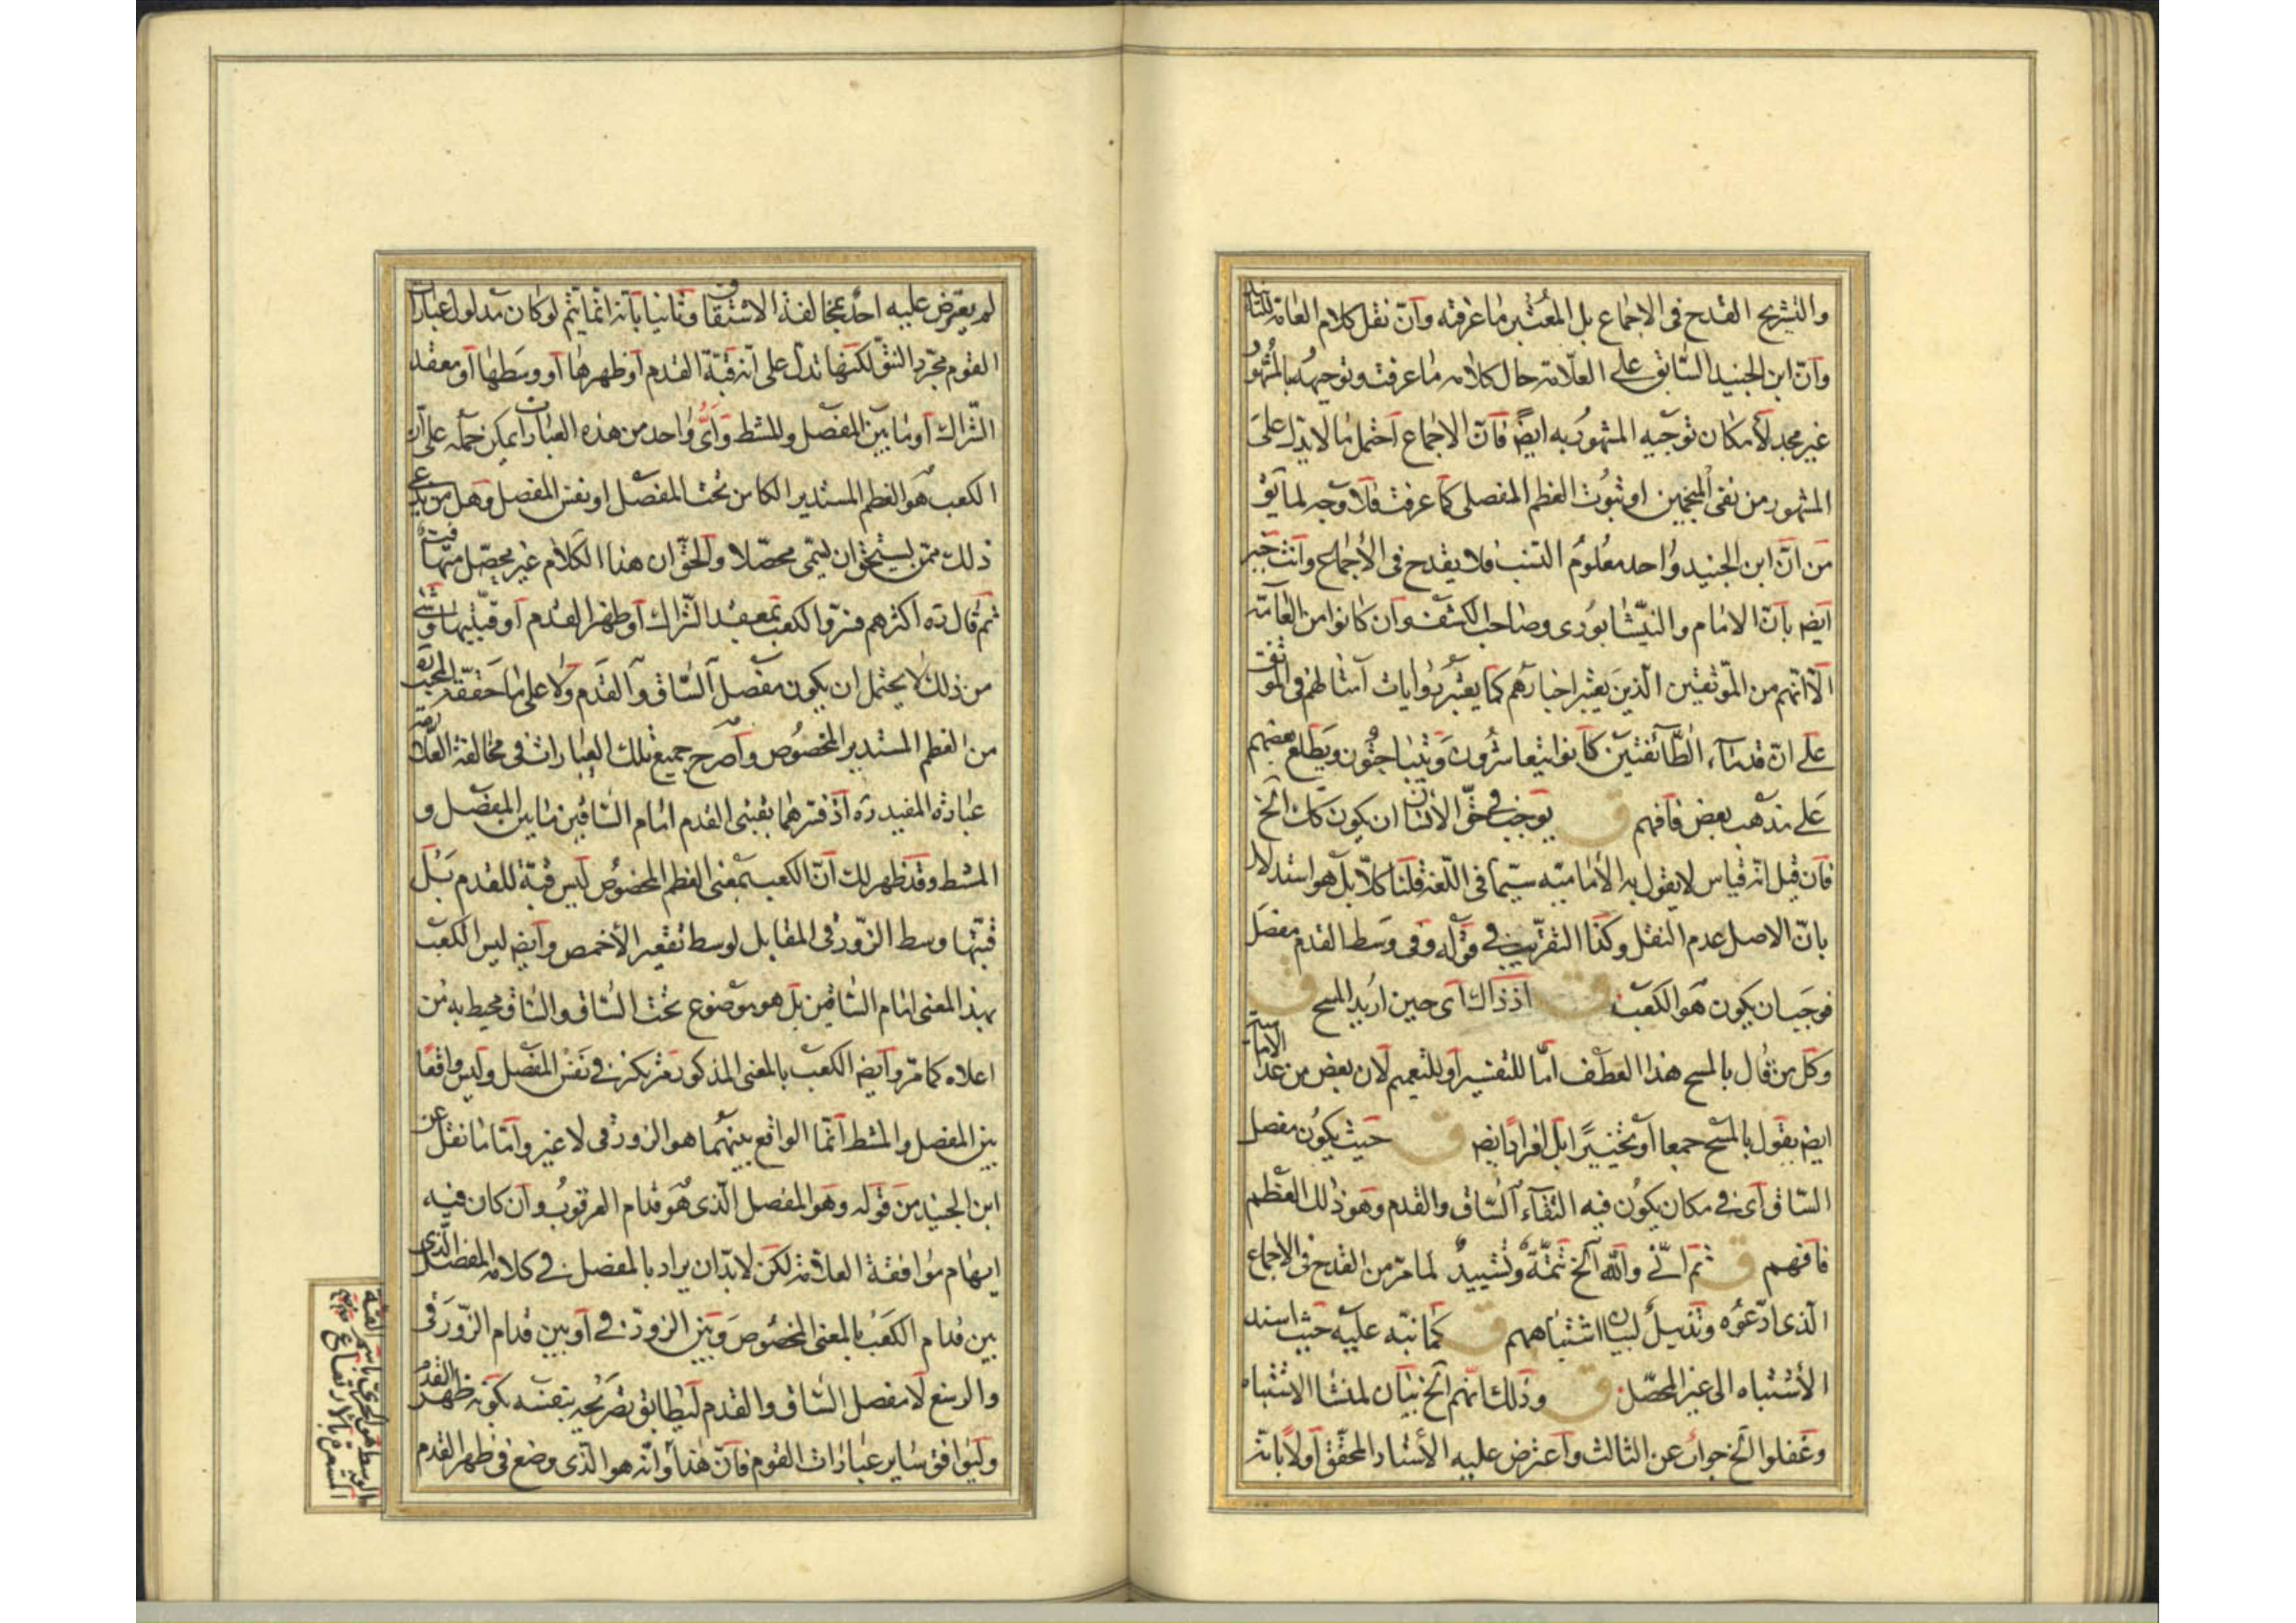 والتشريح القدح في الاجماع بل المعتبر ما عرفته وان نقل كلام العامة
وان ابن الجنيد السابق على العلامة حال كلامه ما عرفت وتوجيهه بالمشهور
غير مجد لامكان توجيه المشهور به ايضا فان الاجماع احتمل ما لا يدل على
المشهور من نفى المنجمين او ثبوت العظم المفصلى كما عرفت فلا وجه لما يق
من ان ابن الجنيد واحد معلوم النسب فلا يقدح في الاجماع وانت خبير
ايض بان الامام والنيشابورى وصاحب الكشف وان كانوا من العامة
الا انهم من الموثقين الذين يعتبر اخبارهم كما يعتبر روايات امثالهم في الموثقت
على ان قدماء الطائفتين كانوا يتعاشرون ويتباحثون ويطلع بعضهم
على مذهب بعض فافهم ق يوجب في حق الانسان ان يكون كك الخ
فان قيل انه قياس لا يقول به الامامية سيما في اللغة قلنا كلا بل هو استدلال
بان الاصل عدم النقل وكذا التقريب في قوله وفى وسط القدم مفصل
فوجب ان يكون هو الكعب ق اذ ذاك اى حين اريد المسح ق
وكل من قال بالمسح هذا العطف اما للتفسير او للتعميم لان بعض من عدا الامامية
ايض يقول بالمسح جمعا او تخييرا بل افرادا ايض ق حيث يكون مفصل
الساق اى في مكان يكون فيه التقاء الساق والقدم وهو ذلك العظم
فافهم ق ثم انى والله الخ تتمة وتشييد لما مر من القدح في الاجماع
الذى ادعوه وتذييل لبيان اشتباههم ق كما نبه عليه حيث اسند
الاشتباه الى غير المحصل ق وذلك انهم الخ بيان لمنشا الاشتباه
وغفلوا الخ جواب عن الثالث واعترض عليه الاستاد المحقق اولا بانه
لم يعترض عليه احد بمخالفة الاشتقاق وثانيا بانه انما يتم لو كان مدلول عبارات
القوم مجرد النتو لكنها تدل على انه قبة القدم او ظهرها او وسطها او معقد
الشراك او ما بين المفصل والمشط واى واحد من هذه العبارات يمكن حمله على ان
الكعب هو العظم المستدير الكائن تحت المفصل او نفس المفصل وهل من يدعى
ذلك ممن يستحق ان يسمى محصلا والحق ان هذا الكلام غير محصل
ثم قال ره اكثرهم فسروا الكعب بمعقد الشراك او ظهر القدم او قبتيها وشئ
من ذلك لا يحتمل ان يكون مفصل الساق والقدم ولا على ما حققه
من العظم المستدير المخصوص واصرح جميع تلك العبارات في مخالفة العلامة
عبارة المفيد ره اذ فسرهما بقبتى القدم امام الساقين ما بين المفصل و
المشط وقد ظهر لك ان الكعب بمعنى العظم المخصوص ليس قبة للقدم بل
قبتها وسط الزورقى المقابل لوسط تقعير الاخمص وايض ليس الكعب
بهذا المعنى امام الساقين بل هو موضوع تحت الساق والساق محيط به من
اعلاه كما مر وايض الكعب بالمعنى المذكور مرتكز في نفس المفصل وليس واقعا
بين المفصل والمشط انما الواقع بينهما هو الزورقى لا غير واما ما نقل عن
ابن الجنيد من قوله وهو المفصل الذى هو قدام العرقوب وان كان فيه
ايهام موافقة العلامة لكن لا بد ان يراد بالمفصل في كلامه المفصل الذى
بين قدام الكعب بالمعنى المخصوص وبين الزورقى او بين قدام الزورقى
والرسغ لا مفصل الساق والقدم ليطابق تصريحه بنفسه بكونه ظهر القدم
وليوافق ساير عبارات القوم فان هذا وانه هو الذى وضع في ظهر القدم